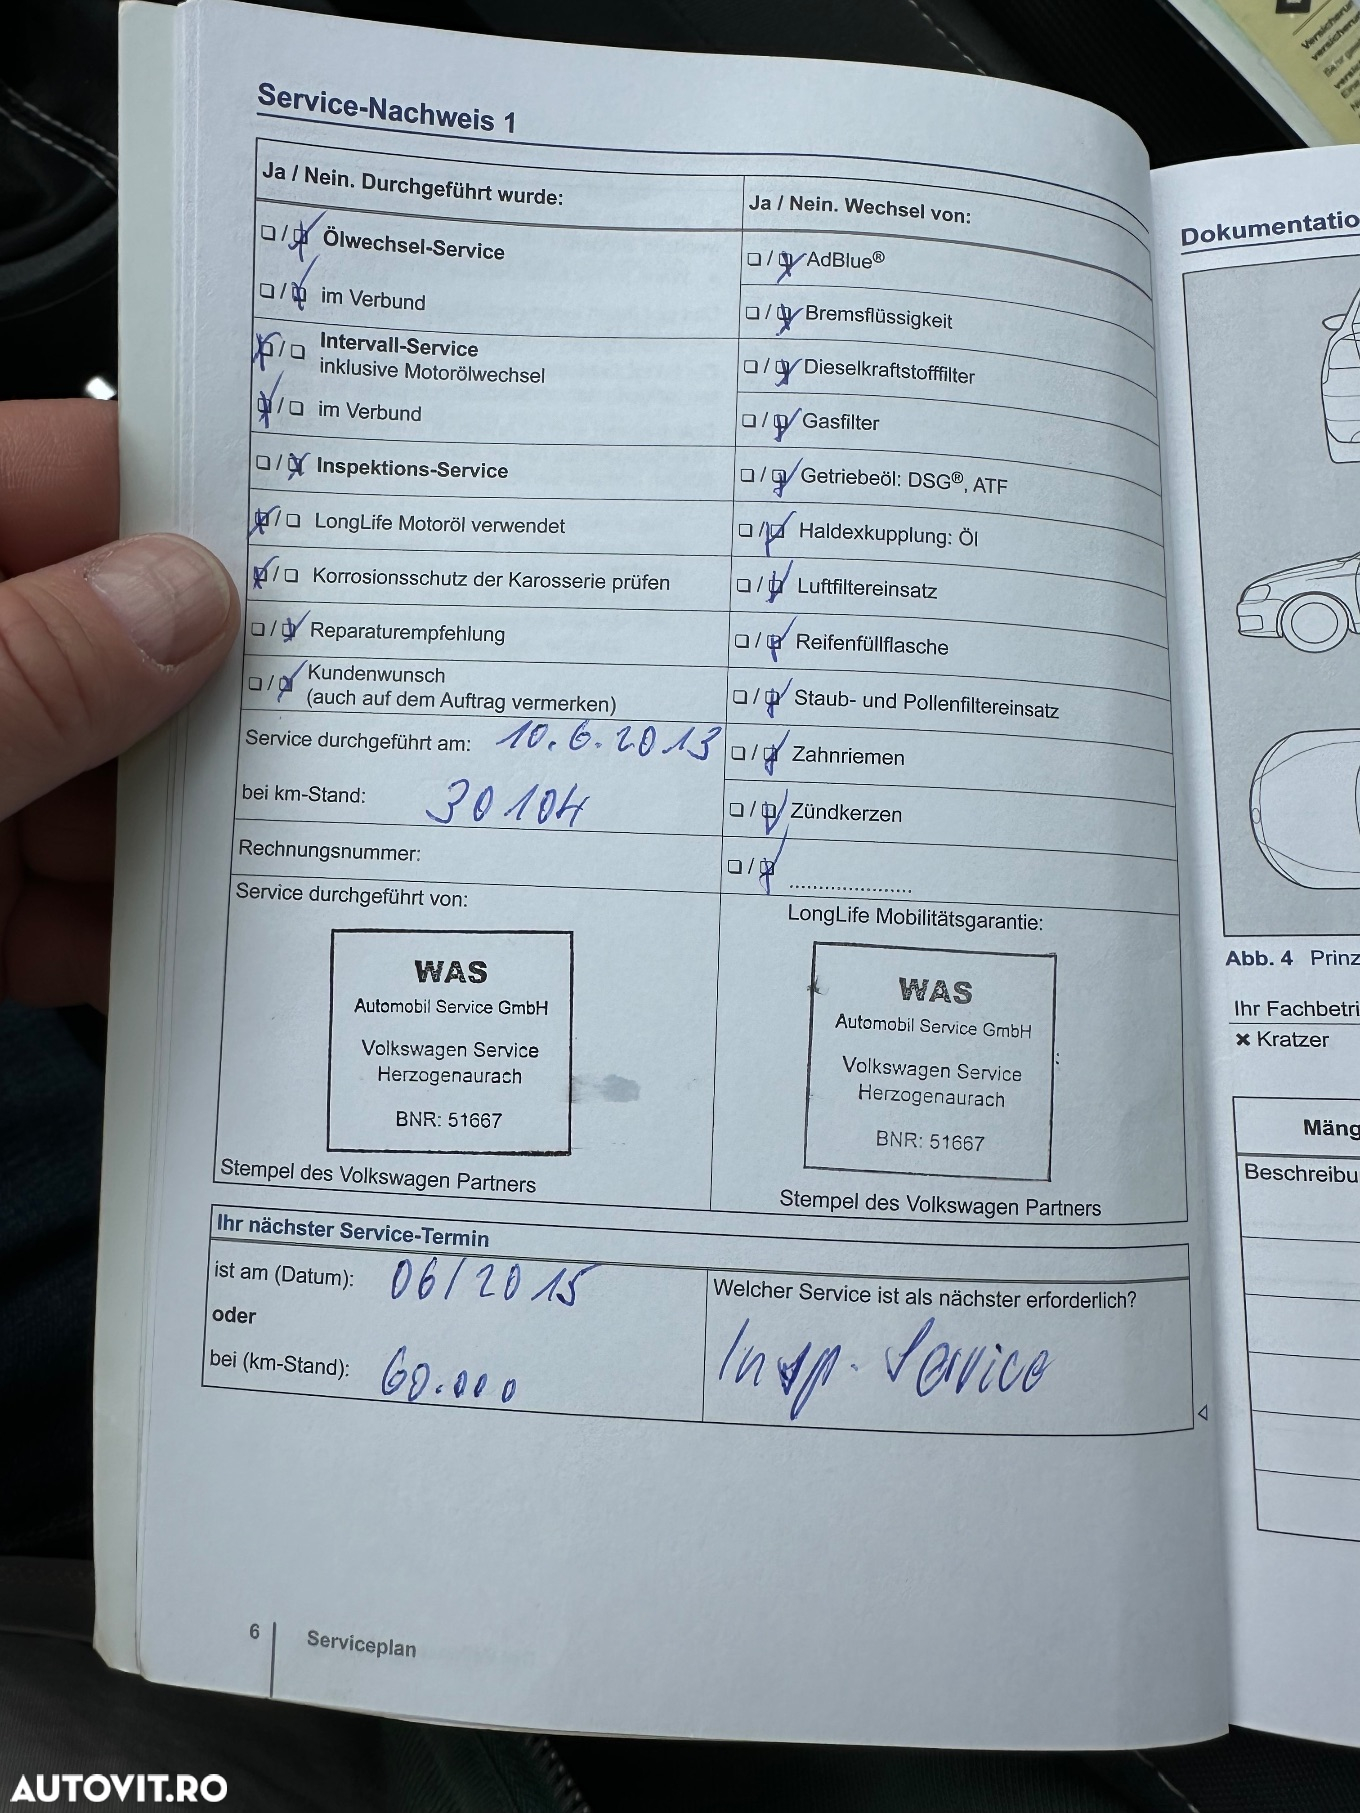 Service-Nachweis 1
Ja / Nein. Durchgeführt wurde:
Ölwechsel-Service
im Verbund
Intervall-Service
inklusive Motorölwechsel
im Verbund
Inspektions-Service
LongLife Motoröl verwendet
Korrosionsschutz der Karosserie prüfen
Reparaturempfehlung
Kundenwunsch
(auch auf dem Auftrag vermerken)
Service durchgeführt am: 10.6.2013
bei km-Stand: 30104
Rechnungsnummer:
Service durchgeführt von:
WAS
Automobil Service GmbH
Volkswagen Service
Herzogenaurach
BNR: 51667
Stempel des Volkswagen Partners
Ja / Nein. Wechsel von:
AdBlue®
Bremsflüssigkeit
Dieselkraftstofffilter
Gasfilter
Getriebeöl: DSG®, ATF
Haldexkupplung: Öl
Luftfiltereinsatz
Reifenfüllflasche
Staub- und Pollenfiltereinsatz
Zahnriemen
Zündkerzen
......................
LongLife Mobilitätsgarantie:
WAS
Automobil Service GmbH
Volkswagen Service
Herzogenaurach
BNR: 51667
Stempel des Volkswagen Partners
Ihr nächster Service-Termin
ist am (Datum): 06/2015
oder
bei (km-Stand): 60.000
Welcher Service ist als nächster erforderlich?
Insp. Service
6
Serviceplan
Dokumentatio
Abb. 4 Prinz
Ihr Fachbetri
× Kratzer
Mäng
Beschreibu
AUTOVIT.RO